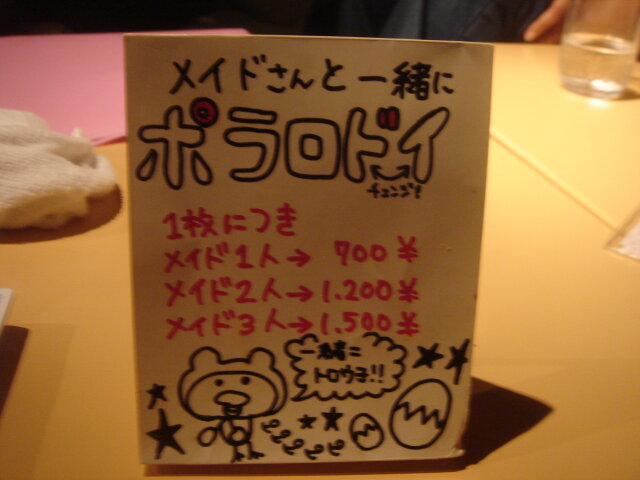 メイドさんと一緒に
ポラロドイ
チェンジ!
1枚につき
メイド1人→ 700¥
メイド2人→1.200¥
メイド3人→1.500¥
一緒に
トロウ子!!
ピピピピピピ